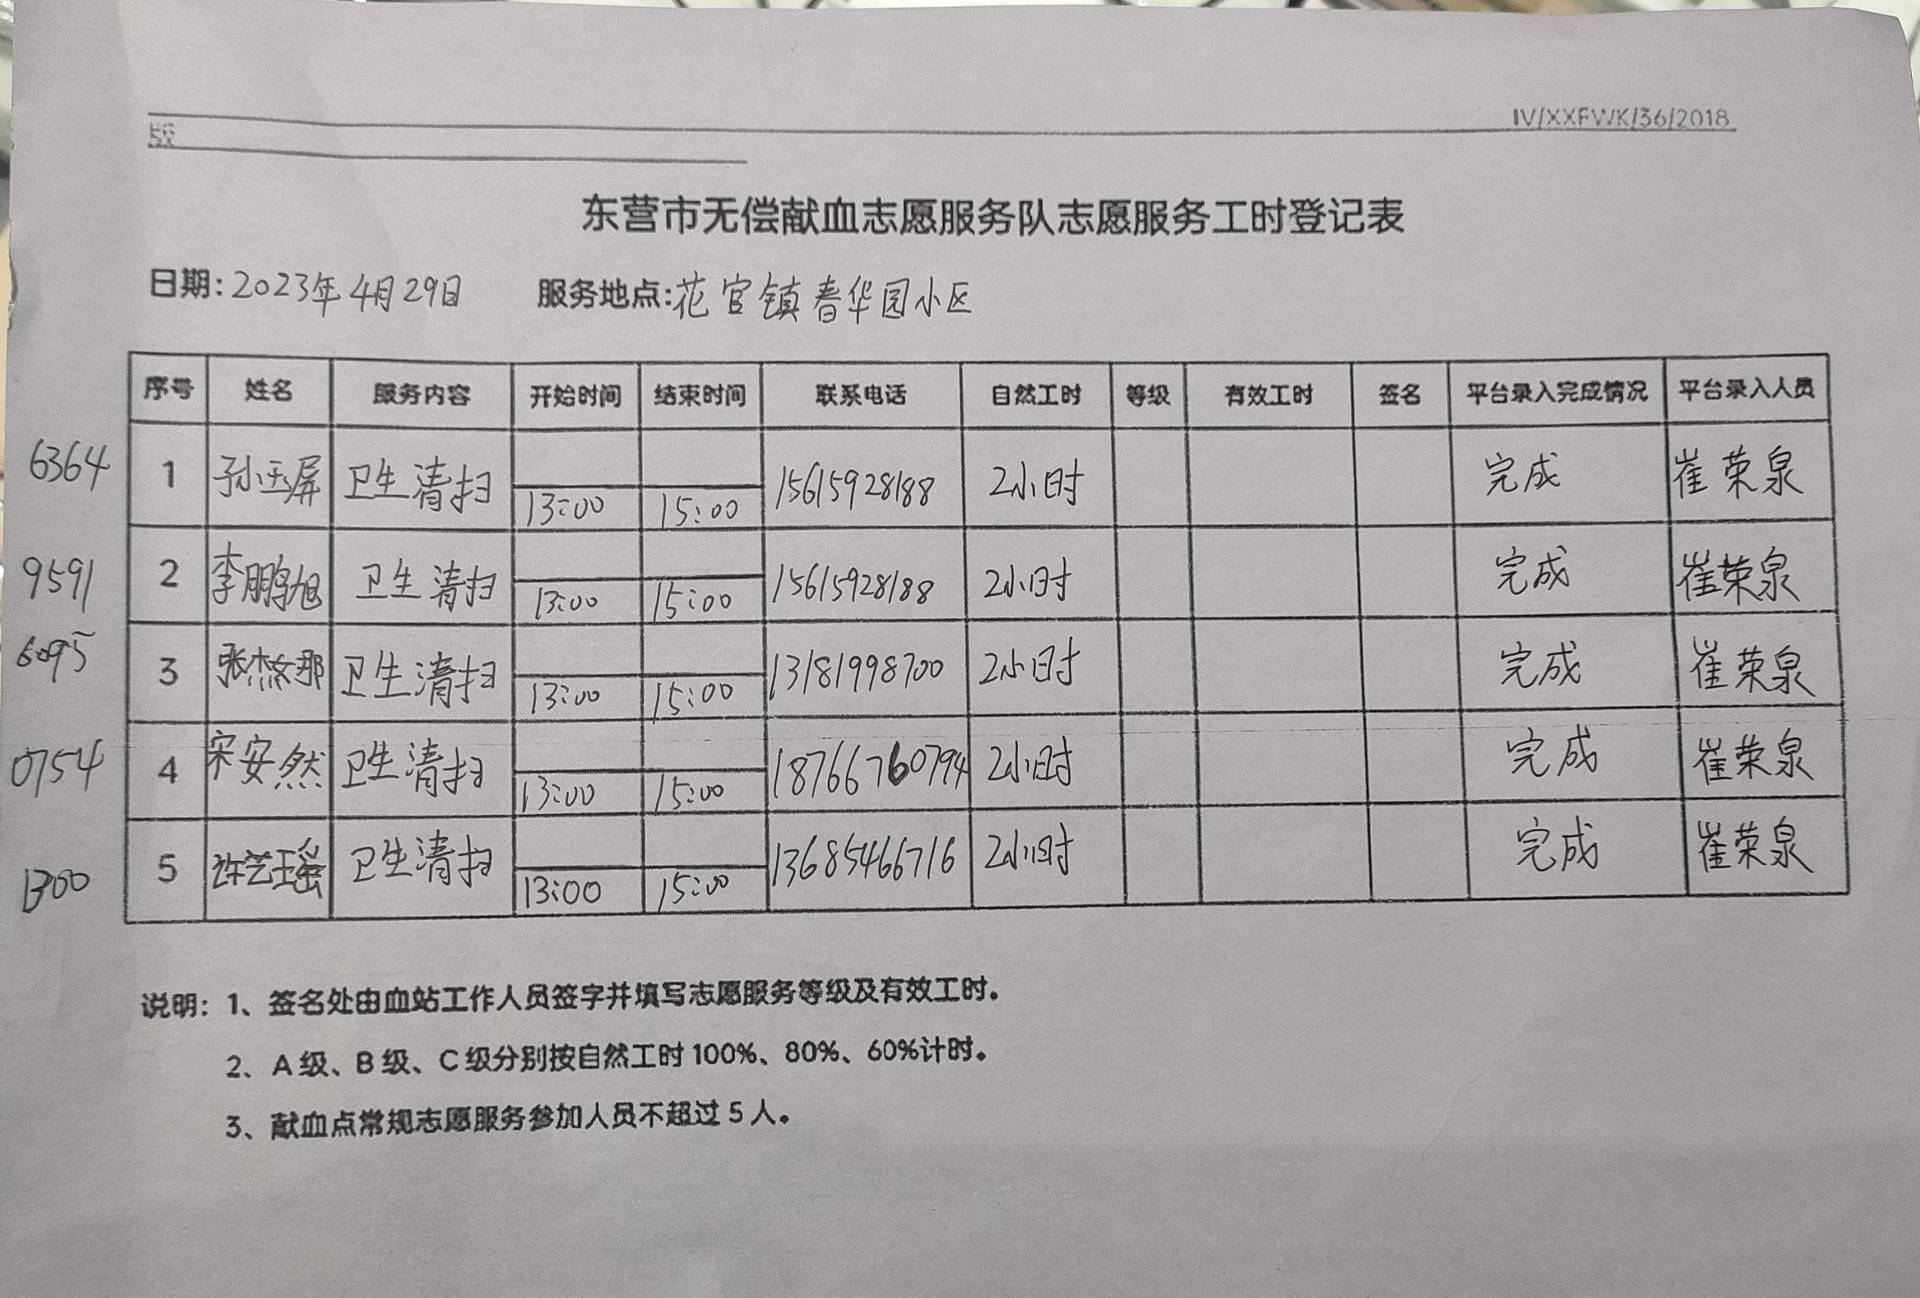 IV/XXFWK/36/2018
东营市无偿献血志愿服务队志愿服务工时登记表
日期:2023年4月29日 服务地点:花官镇春华园小区
序号 姓名 服务内容 开始时间 结束时间 联系电话 自然工时 等级 有效工时 签名 平台录入完成情况 平台录入人员
6364 1 孙玉屏 卫生清扫 13:00 15:00 15615928188 2小时 完成 崔荣泉
9591 2 李鹏旭 卫生清扫 13:00 15:00 15615928188 2小时 完成 崔荣泉
6095 3 张杰那 卫生清扫 13:00 15:00 13181998700 2小时 完成 崔荣泉
0754 4 宋安然 卫生清扫 13:00 15:00 18766760794 2小时 完成 崔荣泉
1300 5 许艺瑶 卫生清扫 13:00 15:00 13685466716 2小时 完成 崔荣泉
说明:1、签名处由血站工作人员签字并填写志愿服务等级及有效工时。
2、A级、B级、C级分别按自然工时100%、80%、60%计时。
3、献血点常规志愿服务参加人员不超过5人。